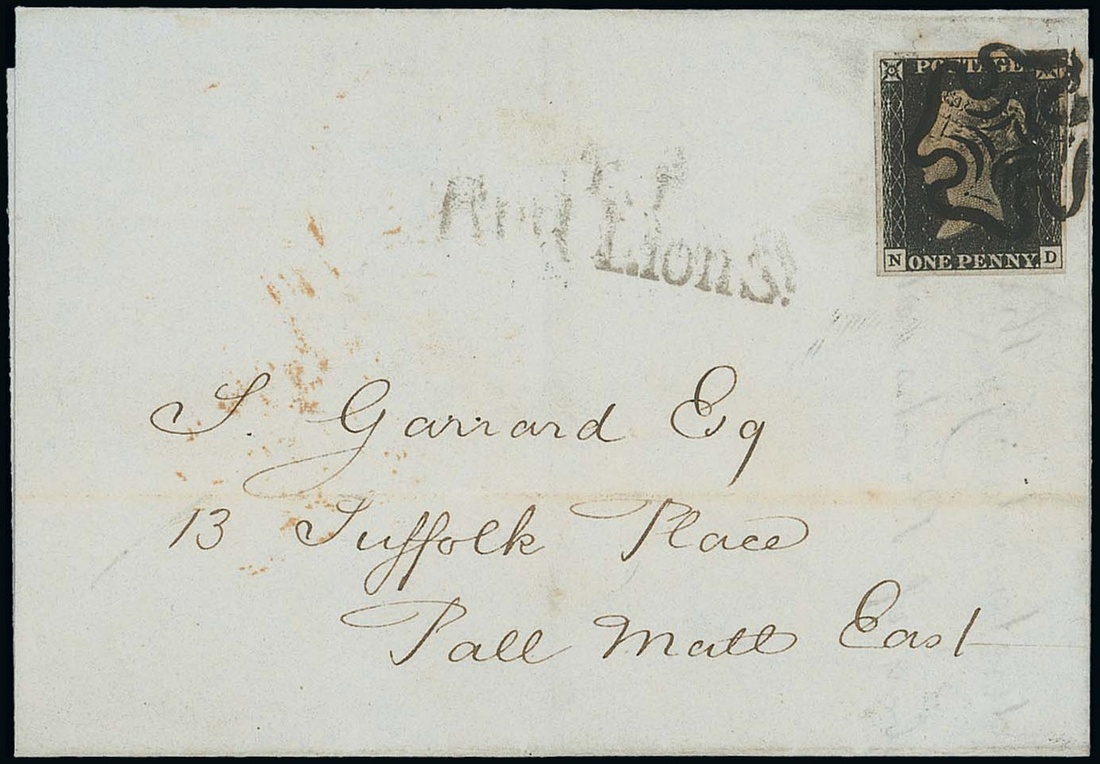 POSTAGE
N D
ONE PENNY
T.P
Red Lion S!
S. Garrard Esq
13 Suffolk Place
Pall Mall East